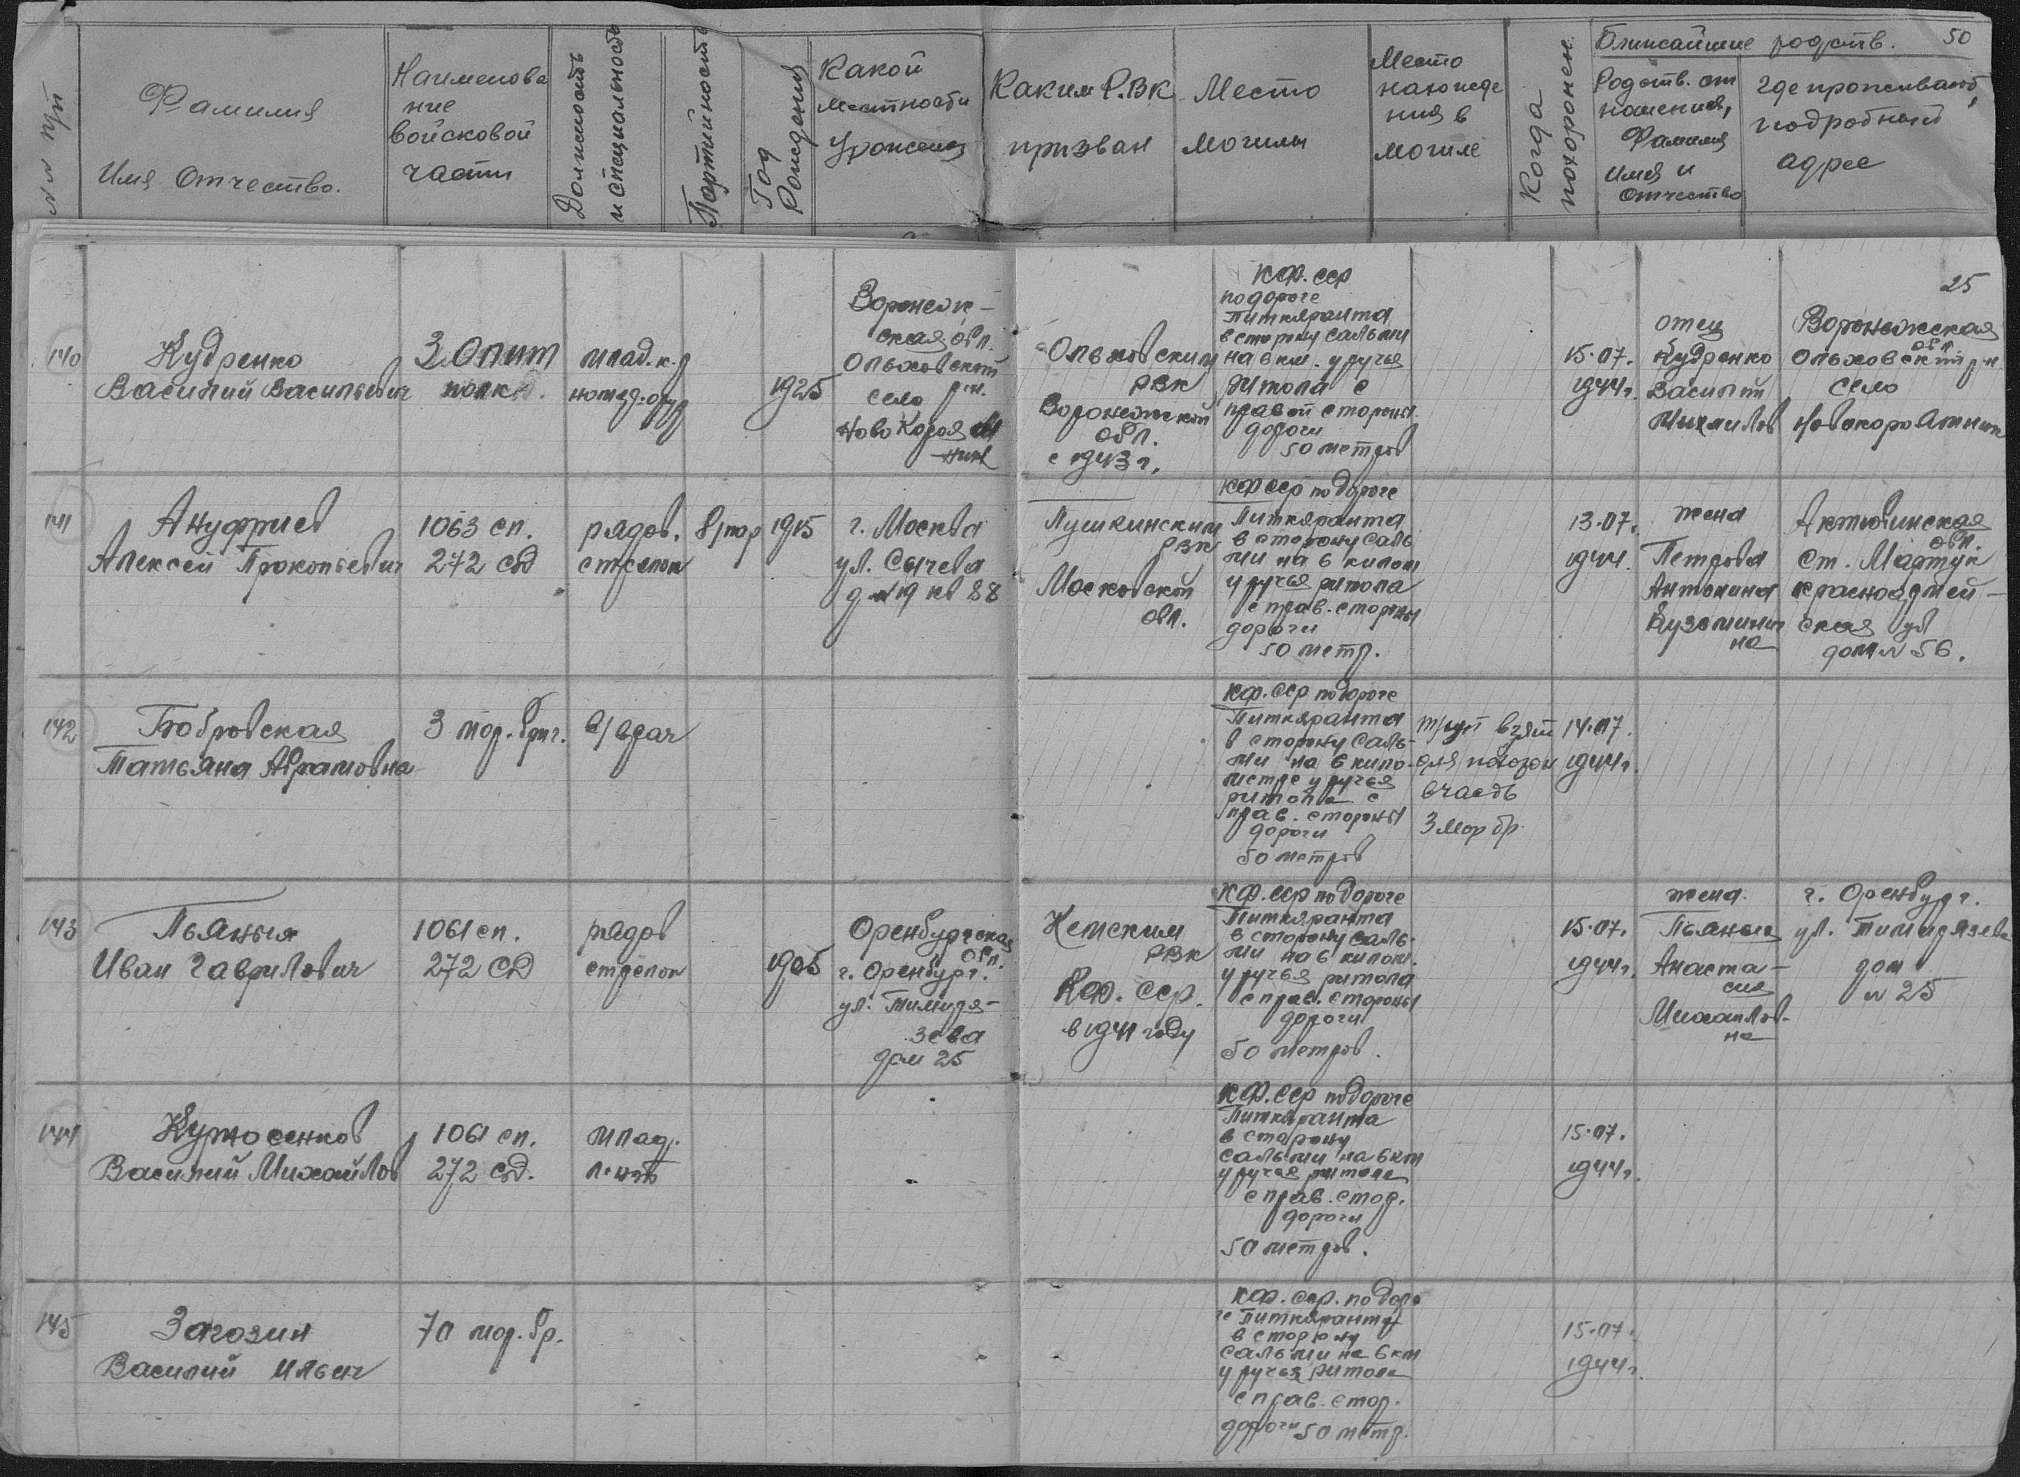 №№ п/п
Фамилия
Имя Отчество.
Наименова
ние
войсковой
части
Должность
и специальность
Партийность
Год
Рождения
Какой
местности
уроженец
Каким Р.ВК
призван
Место
могилы
Место
нахожде
ния в
могиле
Когда
похоронен
Ближайшие родств.
50
Родств. от
ношения,
Фамилия
имя и
отчество
Где проживают,
подробный
адрес
25
140
Кудренко
Василий Васильевич
3 Опит
полка.
млад. к-р
1925
Воронеж-
ская обл.
Ольховский
р-н.
село
Ольховским
РВК
Воронежской
обл.
с 1943 г.
КФ. ССР
по дороге
Питкяранта
в сторону Сальми
на 6 км. у ручья
ритола с
правой стороны
дороги
50 метров
15.07.
1944 г.
отец
Кудренко
Василий
Михайлов
Воронежская
обл.
Ольховский р-н
село
141
Ануфриев
Алексей Прокопьевич
1063 сп.
272 сд
рядов.
стрелок
б/пар
1915
г. Москва
ул. Сычева
д №19 кв 88
Пушкинским
РВК
Московской
обл.
КФ ССР по дороге
Питкяранта
в сторону Саль
ми на 6 килом
у ручья ритола
с прав. стороны
дороги
50 метр.
13.07.
1944.
жена
Петрова
Антонина
Кузьминич
на
Актюбинская
обл.
ст. Мартук
красноармей-
ская ул
дом № 56.
142
Бобровская
Татьяна Абрамовна
3 мор. бриг.
в/врач
КФ. ССР по дороге
Питкяранта
в сторону Саль-
ми на 6 кило-
метре у ручья
ритола с
прав. стороны
дороги
50 метров
труп взят
для похорон
в часть
3 мор бр.
14.07.
1944 г.
143
Пьяных
Иван Гаврилович
1061 сп.
272 СД
рядов
стрелок
1905
Оренбургская
обл.
г. Оренбург.
ул. Тимиря-
зева
дом 25
Кемским
РВК
КФ. ССР.
в 1941 году
КФ. ССР по дороге
Питкяранта
в сторону Саль-
ми на 6 килом.
у ручья ритола
с прав. стороны
дороги
50 метров.
15.07.
1944 г.
жена
Пьяных
Анаста-
сия
Михайлов-
на
г. Оренбург.
ул. Тимирязева
дом
№ 25
144
Василий Михайлов
1061 сп.
272 сд.
млад.
л-нт
КФ. ССР по дороге
Питкяранта
в сторону
Сальми на 6 км
у ручья ритола
с прав. стор.
дороги
50 метров.
15.07.
1944 г.
145
Загозин
Василий Ильич
70 мор. бр.
КФ. ССР. по доро
ге Питкяранта
в сторону
Сальми на 6 км
у ручья ритола
с прав. стор.
дороги 50 метр.
15.07.
1944 г.